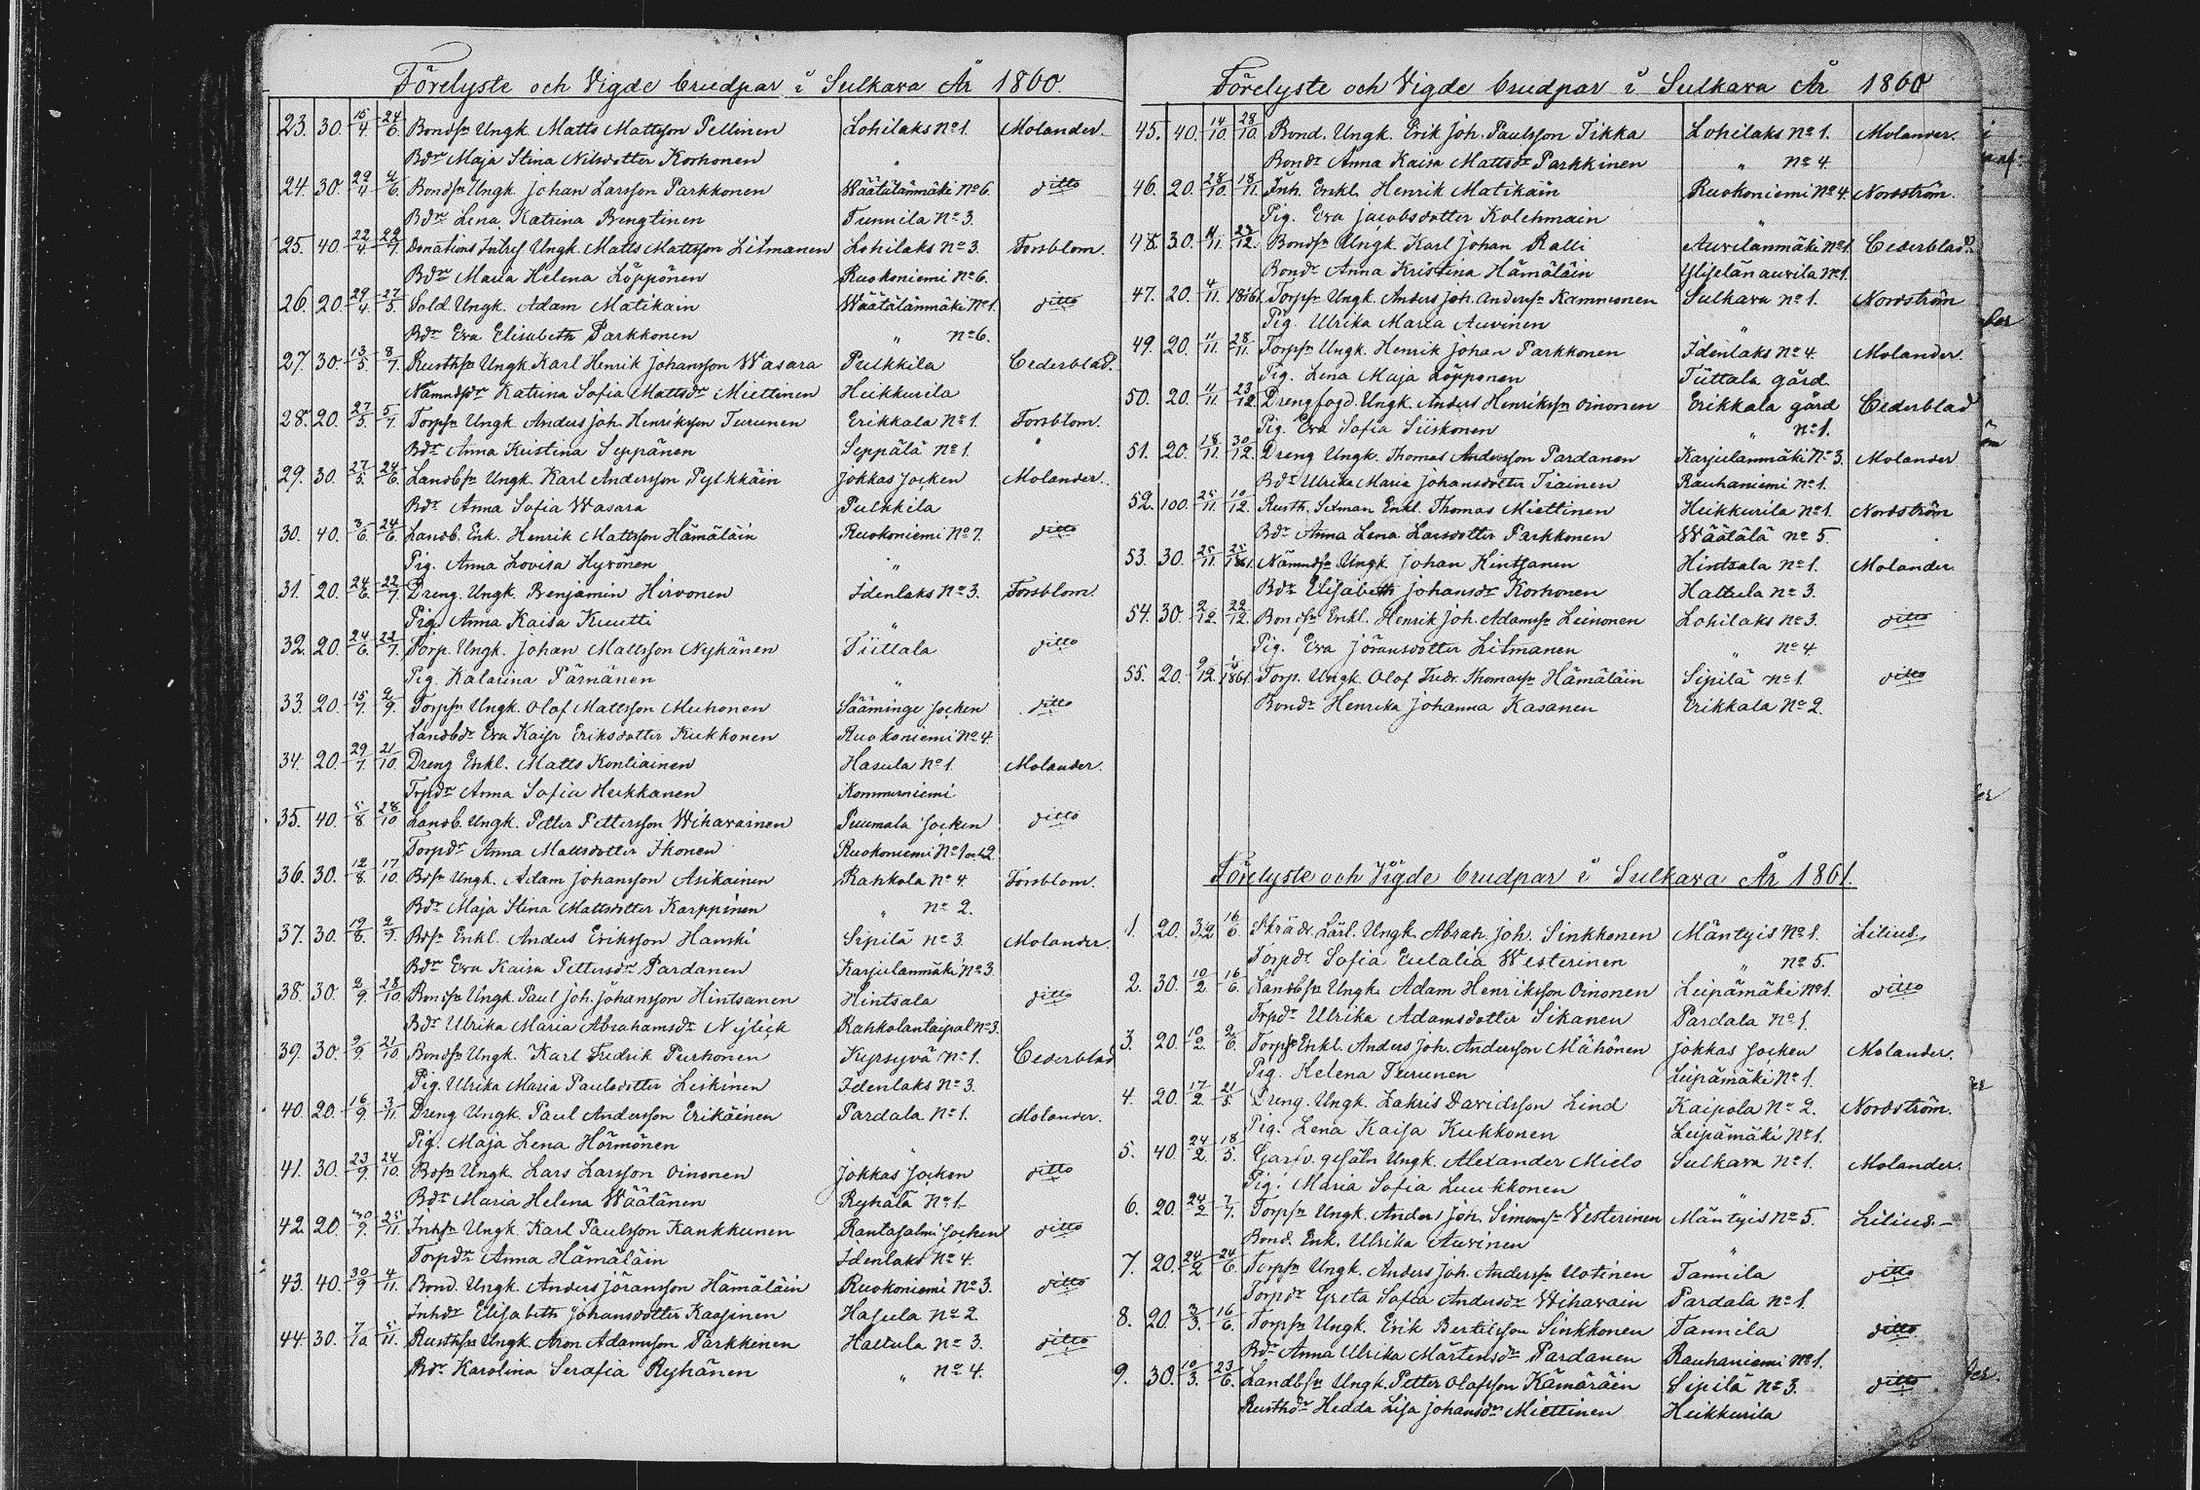 Förelyste och Vigde brudpar i Sulkava År 1860.
23. 30. 15/4 24/6 Bondsn Ungk. Matts Mattsson Pellinen Lohilaks No 1. Molander.
Bdr Maja Stina Nilsdotter Korhonen "
24. 30. 29/4 9/6 Bondsn Ungk. Johan Larsson Parkkonen Wäätälänmäki No 6. ditto
Bdr Lena Katrina Bengtinen Tunnila No 3.
25. 40. 22/4 29/7 Donations Ungk. Matts Mattsson Litmanen Lohilaks No 3. Forsblom.
Bdr Maria Helena Löppönen Ruokoniemi No 6.
26. 20. 29/4 27/5 Sold. Ungk. Adam Matikain Wäätälänmäki No 1. ditto
Bdr Eva Elisabeth Parkkonen " No 6.
27. 30. 13/5 8/7 Rusthsn Ungk. Karl Henrik Johansson Wasara Pulkkila Cederblad.
Nämndsdr Katrina Sofia Mattsdr Miettinen Heikkurila
28. 20. 27/5 5/7 Torpsn Ungk. Anders Joh. Henriksson Turunen Erikkala No 1. Forsblom.
Bdr Anna Kristina Seppänen Seppälä No 1.
29. 30. 27/5 24/6 Landbsn Ungk. Karl Andersson Pylkkäin Jokkas Socken Molander.
Bdr Anna Sofia Wasara Pulkkila
30. 40. 3/6 24/6 Landb. Enk. Henrik Mattsson Hämäläin Ruokoniemi No 7. ditto
Pig. Anna Lovisa Hyvönen "
31. 20. 24/6 22/7 Dreng. Ungk. Benjamin Hirvonen Idenlaks No 3. Forsblom.
Pig. Anna Kaisa Kuutti "
32. 20. 24/6 22/7 Torp. Ungk. Johan Mattsson Nyhänen Tiittala ditto
Pig. Katarina Pärnänen "
33. 20. 15/7 2/9 Torpsn Ungk. Olof Mattsson Muhonen Sääminge Socken ditto
Landbdr Eva Kajsa Eriksdotter Kukkonen Ruokoniemi No 4.
34. 20. 29/7 21/10 Dreng Enkl. Matts Kontiainen Hasula No 1. Molander.
Torpdr Anna Sofia Heikkanen Kommerniemi
35. 40. 5/8 28/10 Landb. Ungk. Petter Pettersson Wihavainen Puumala Socken ditto
Torpdr Anna Mattsdotter Ihonen Ruokoniemi No 1 och 2.
36. 30. 12/8 17/10 Bdsn Ungk. Adam Johansson Asikainen Rahkola No 4. Forsblom.
Bdr Maja Stina Mattsdotter Karppinen " No 2.
37. 30. 19/8 2/9 Bdsn Enkl. Anders Eriksson Hanski Sipilä No 3. Molander.
Bdr Eva Kaisa Pettersdr Pardanen Karjulanmäki No 3.
38. 30. 2/9 28/10 Bondsn Ungk. Paul Joh. Johansson Hintsanen Hintsala ditto
Bdr Ulrika Maria Abrahamsdr Rahkolantaipal No 3.
39. 30. 2/9 21/10 Bondsn Ungk. Karl Fredrik Purhonen Kyrsyvä No 1. Cederblad
Pig. Ulrika Maria Paulsdotter Leskinen Idenlaks No 3.
40. 20. 16/9 3/11 Dreng Ungk. Paul Andersson Erikäinen Pardala No 1. Molander.
Pig. Maja Lena Hörmönen "
41. 30. 23/9 24/10 Bdsn Ungk. Lars Larsson Oinonen Jokkas Socken ditto
Bdr Maria Helena Wäätänen Ryhälä No 1.
42. 20. 30/9 25/11 Inhsn Ungk. Karl Paulsson Kankkunen Rantasalmi Socken ditto
Torpdr Anna Hämäläin Idenlaks No 4.
43. 40. 30/9 4/11 Bond. Ungk. Anders Jöransson Hämäläin Ruokoniemi No 3. ditto
Inhdr Elisabeth Johansdotter Kaasinen Hasula No 2.
44. 30. 7/10 5/11 Rusthsn Ungk. Aron Adamsson Parkkinen Haltula No 3. ditto
Bdr Karolina Serafia Ryhänen " No 4.
Förelyste och Vigde brudpar i Sulkava År 1860
45. 40. 14/10 28/10 Bond. Ungk. Erik Joh. Paulsson Tikka Lohilaks No 1. Molander.
Bondr Anna Kaisa Mattsdr Parkkinen " No 4
46. 20. 28/10 18/11 Inh. Enkl. Henrik Matikain Ruokoniemi No 4. Nordström.
Pig. Eva Jacobsdotter Kolehmain "
48. 30. 4/11 27/12 Bondsn Ungk. Karl Johan Ralli Auvilanmäki No 1. Cederblad.
Bondr Anna Kristina Hämäläin Ylijelän auvila No 1.
47. 20. 4/11 1861. Torpsn Ungk. Anders Joh. Anderssn Kammonen Sulkava No 1. Nordström
Pig. Ulrika Maria Auvinen "
49. 20. 11/11 28/11 Torpsn Ungk. Henrik Johan Parkkonen Idenlaks No 4. Molander.
Pig. Lena Maja Löpponen Tiittala gård.
50. 20. 11/11 23/12 Drengfogd. Ungk. Anders Henrikssn Oinonen Erikkala gård Cederblad
Pig. Eva Sofia Siiskonen " No 1.
51. 20. 18/11 30/12 Dreng Ungk. Thomas Andersson Pardanen Karjulanmäki No 3. Molander
Bdr Ulrika Maria Johansdotter Tiainen Rauhaniemi No 1.
52. 100. 25/11 10/12 Rusth. Sexman Enkl. Thomas Miettinen Heikkurila No 1. Nordström
Bdr Anna Lena Larsdotter Parkkonen Wäätälä No 5.
53. 30. 25/11 25/1861 Nämndsn Ungk Johan Hintsanen Hintsala No 1. Molander
Bdr Elisabeth Johansdr Korhonen Haltula No 3.
54. 30. 2/12 29/12 Bondsn Enkl. Henrik Joh. Adamssn Leinonen Lohilaks No 3. ditto
Pig. Eva Jöransdotter Litmanen " No 4
55. 20. 9/12 1861 Torp. Ungk. Olof Fredr. Thomassn Hämäläin Sipilä No 1. ditto
Bondr Henrika Johanna Kasanen Erikkala No 2.
Förelyste och Vigde brudpar i Sulkava År 1861.
1. 20. 3/2 16/6 Skräd. Lärl. Ungk. Abrah. Joh. Sinkkonen Mäntyis No 1. Lilius,
Torpdr Sofia Eulalia Westerinen " No 5.
2. 30. 10/2 16/6 Landbsn Ungk. Adam Henriksson Oinonen Leipämäki No 1. ditto
Torpdr Ulrika Adamsdotter Sikanen Pardala No 1.
3. 20. 10/2 2/6 Torpsn Enkl. Anders Joh. Andersson Mähönen Jokkas Socken Molander.
Pig. Helena Turunen Leipämäki No 1.
4. 20. 17/2 21/5 Dreng. Ungk. Zakris Davidsson Lind Kaipola No 2. Nordström.
Pig. Lena Kaisa Kukkonen Leipämäki No 1.
5. 40. 24/2 18/5 Garfv. gesäln Ungk. Alexander Mielo Sulkava No 1. Molander.
Pig. Maria Sofia Luukkonen "
6. 20. 24/2 7/7 Torpsn Ungk. Anders Joh. Simonsn Westerinen Mäntyis No 5. Lilius.
Bond. Enk. Ulrika Auvinen "
7. 20. 24/2 24/6 Torpsn Ungk. Anders Joh. Anderssn Uotinen Tannila ditto
Torpdr Greta Sofia Andersdr Wihavain Pardala No 1.
8. 20. 3/3 16/6 Torpsn Ungk. Erik Bertilsson Sinkkonen Tannila ditto
Bdr Anna Ulrika Mårtensdr Pardanen Rauhaniemi No 1.
9. 30. 10/3 23/6 Landbsn Ungk. Petter Olofsson Kämäräin Sipilä No 3. ditto
Rusthdr Hedda Lisa Johansdr Miettinen Heikkurila